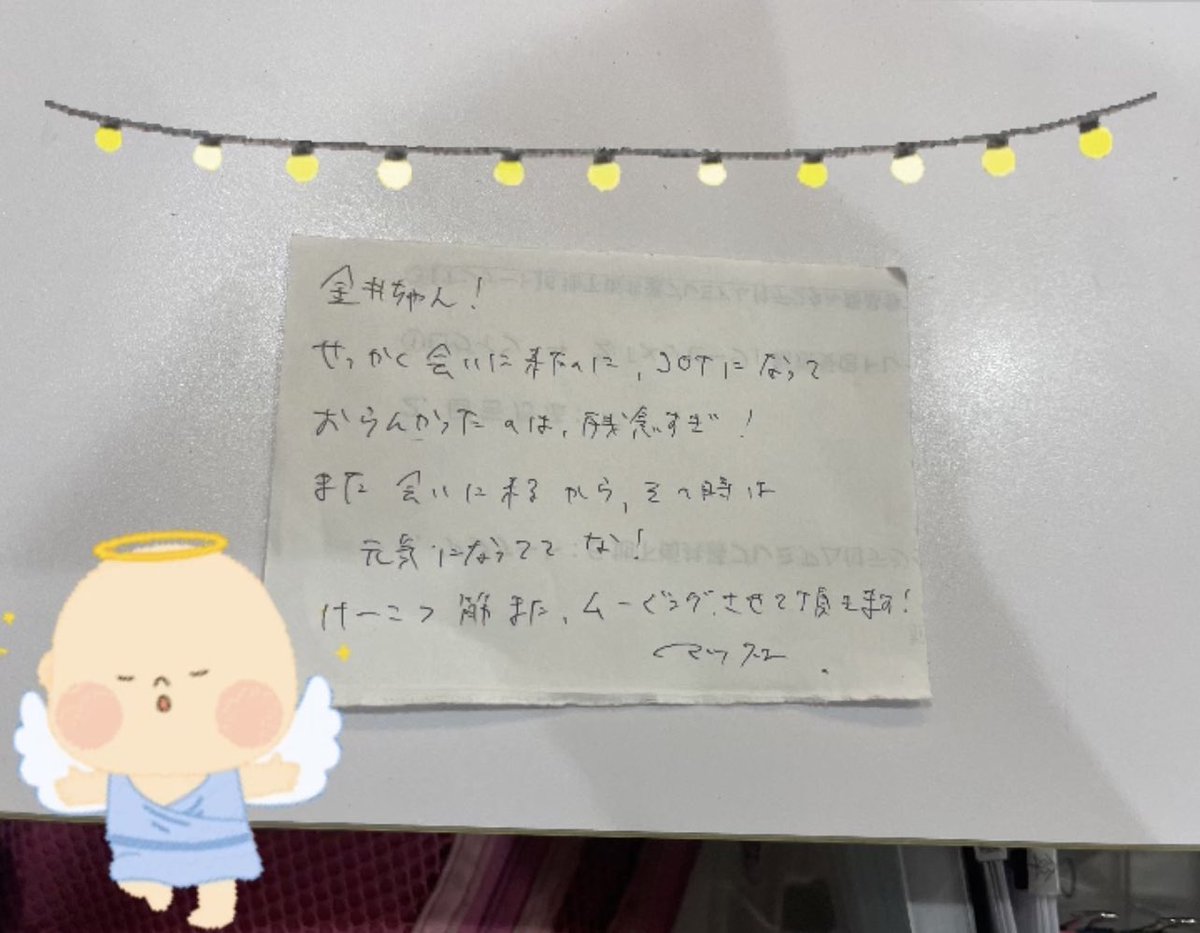 金井ちゃん!
せっかく会いに来たのに、JOTになって
おらんかったのは、残念すぎ!
また会いに来るから、その時は
元気になっててな!
けーこつ筋また、ムービングさせて頂きます!